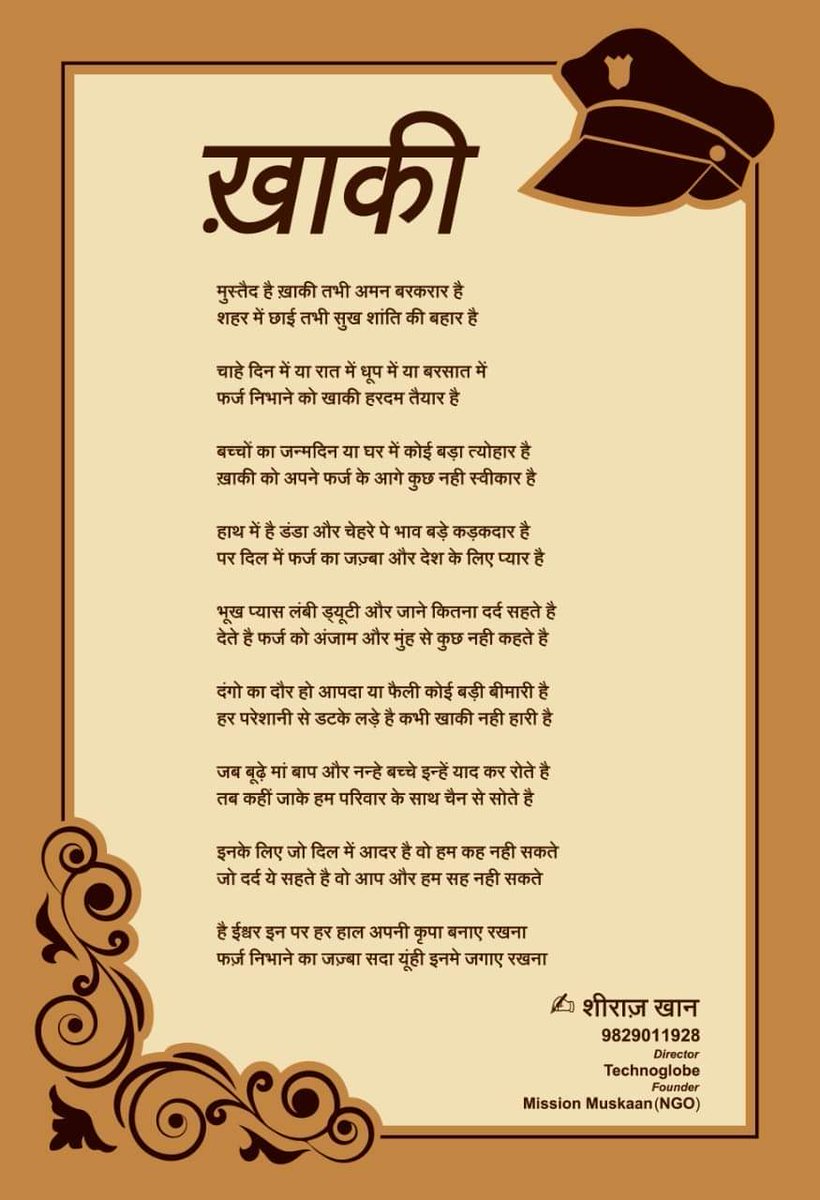 ख़ाकी
मुस्तैद है ख़ाकी तभी अमन बरकरार है
शहर में छाई तभी सुख शांति की बहार है
चाहे दिन में या रात में धूप में या बरसात में
फर्ज निभाने को खाकी हरदम तैयार है
बच्चों का जन्मदिन या घर में कोई बड़ा त्योहार है
ख़ाकी को अपने फर्ज के आगे कुछ नही स्वीकार है
हाथ में है डंडा और चेहरे पे भाव बड़े कड़कदार है
पर दिल में फर्ज का जज़्बा और देश के लिए प्यार है
भूख प्यास लंबी ड्यूटी और जाने कितना दर्द सहते है
देते है फर्ज को अंजाम और मुंह से कुछ नही कहते है
दंगो का दौर हो आपदा या फैली कोई बड़ी बीमारी है
हर परेशानी से डटके लड़े है कभी खाकी नही हारी है
जब बूढ़े मां बाप और नन्हे बच्चे इन्हें याद कर रोते है
तब कहीं जाके हम परिवार के साथ चैन से सोते है
इनके लिए जो दिल में आदर है वो हम कह नही सकते
जो दर्द ये सहते है वो आप और हम सह नही सकते
है ईश्वर इन पर हर हाल अपनी कृपा बनाए रखना
फर्ज़ निभाने का जज़्बा सदा यूंही इनमे जगाए रखना
✍ शीराज़ खान
9829011928
Director
Technoglobe
Founder
Mission Muskaan(NGO)